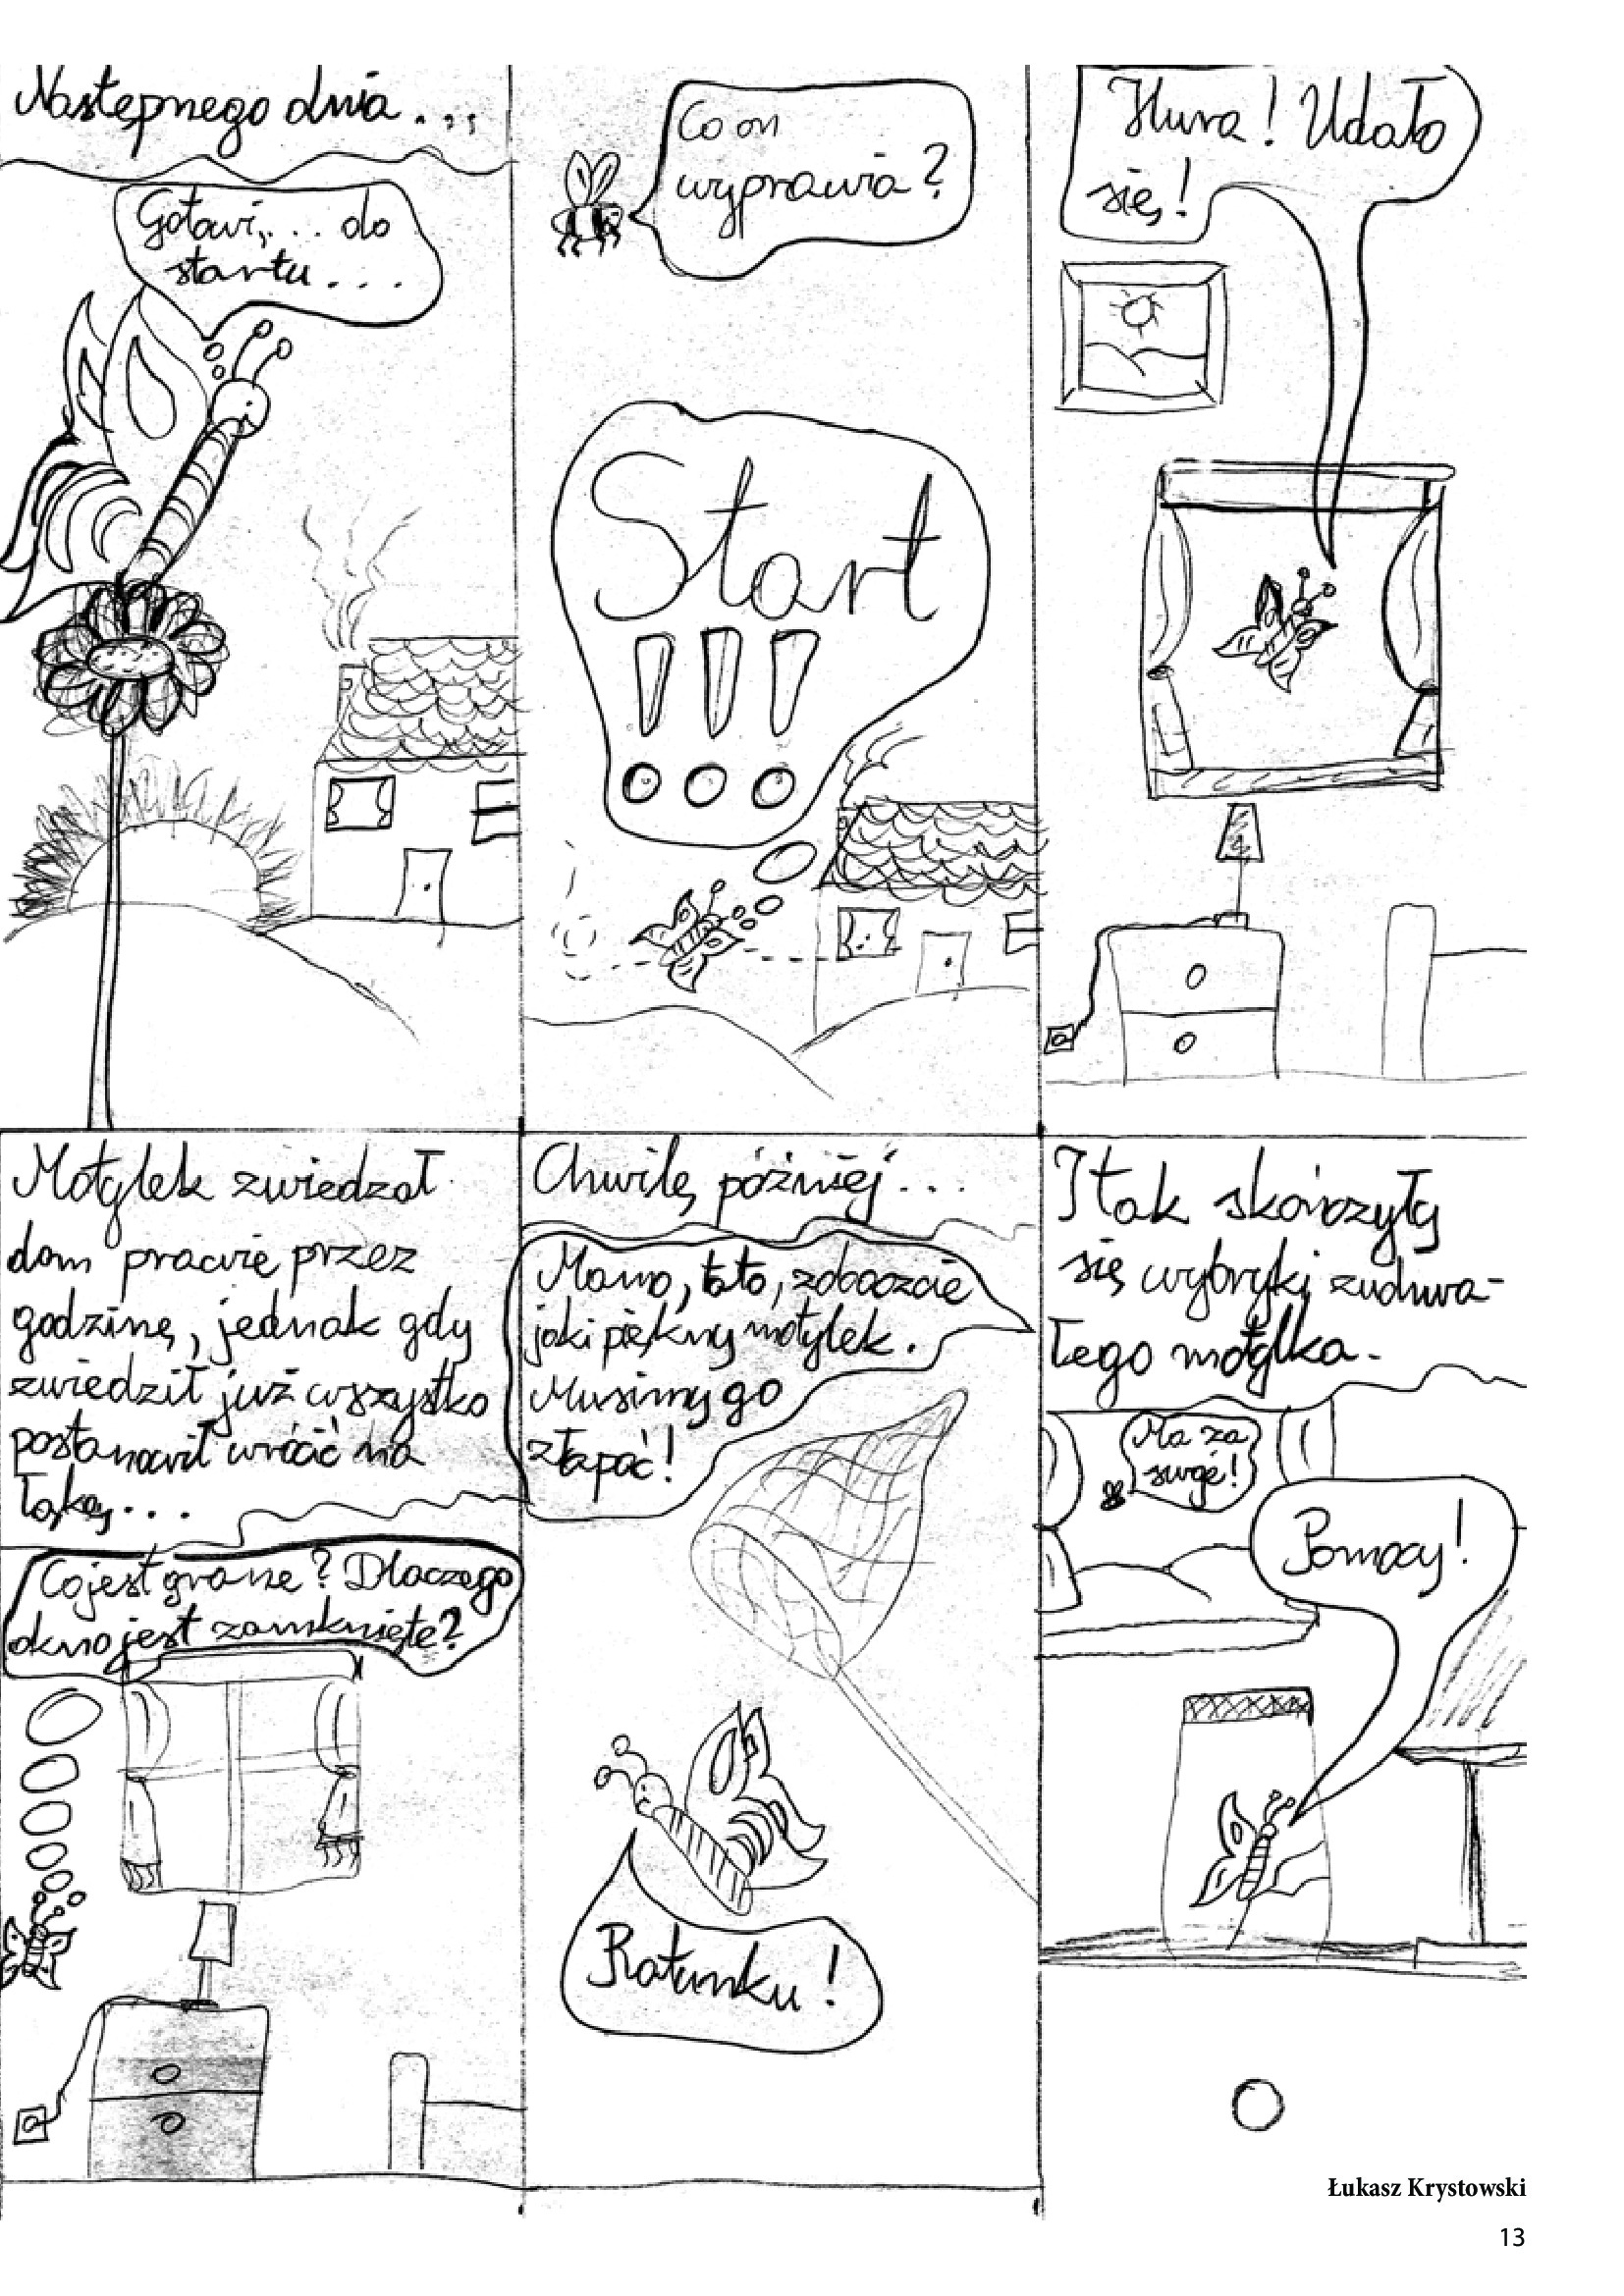 Następnego dnia...
Gotowi,... do
startu...
Co on
wyprawia?
Hura! Udało
się!
Start
!!!
Motylek zwiedzał
dom prawie przez
godzinę, jednak gdy
zwiedził już wszystko
postanowił wrócić na
łąkę...
Co jest grane? Dlaczego
okno jest zamknięte?
Chwilę później...
Mamo, tato, zobaczcie
jaki piękny motylek.
Musimy go
złapać!
Ratunku!
I tak skończyły
się wybryki zuchwa-
łego motylka.
Ma za
swoje!
Pomocy!
Łukasz Krystowski
13